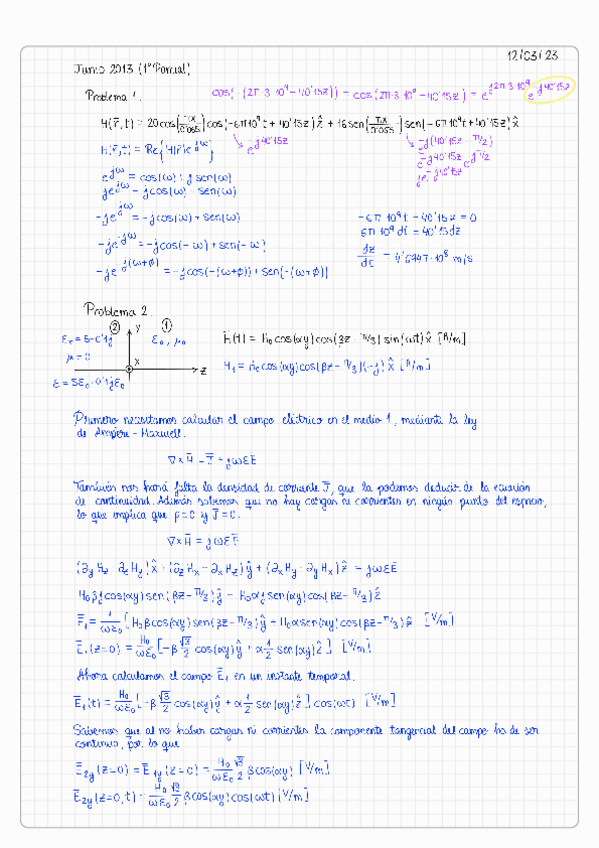 12/03/23
Junio 2013 (1º Parcial)
Problema 1.
cos(-(2π·3·10⁹-40'15z)) = cos(2π·3·10⁹-40'15z) = e^{j2π·3·10⁹} e^{-j40'15z}
H(r̄,t) = 20cos(πx/0'065)cos(-6π10⁹t + 40'15z)ẑ + 16sen(πx/0'065)sen(-6π10⁹t+40'15z)x̂
H(r̄,t) = Re{H(r̄)e^{jω}}
e^{j40'15z}
e^{-j40'15z} e^{jπ/2}
e^{jω} = cos(ω) + jsen(ω)
je^{jω} = jcos(ω) - sen(ω)
-je^{jω} = -jcos(ω) + sen(ω)
-6π10⁹t - 40'15z = 0
6π10⁹dt = 40'15dz
-je^{jω} = -jcos(-ω) + sen(-ω)
dz/dt = 4'6947·10⁸ m/s
-je^{j(ω+ϕ)} = -jcos(-(ω+ϕ)) + sen(-(ω+ϕ))
Problema 2.
② y ①
ε₀, μ₀
x
z
ε = 5ε₀ - 0'1jε₀
H̄(t) = H₀cos(αy)cos(βz - π/3) sin(ωt) x̂ [A/m]
H̄₁ = H₀cos(αy)cos(βz - π/3)(-j) x̂ [A/m]
Primero necesitamos calcular el campo eléctrico en el medio 1, mediante la ley
de Ampère - Maxwell.
∇×H̄ = J̄ + jωεĒ
También nos hará falta la densidad de corriente J̄, que la podemos deducir de la ecuación
de continuidad. Además sabemos que no hay cargas ni corrientes en ningún punto del espacio,
lo que implica que ρ=0 y J̄=0.
∇×H̄ = jωεĒ
(∂yHz - ∂zHy)x̂ + (∂zHx - ∂xHz)ŷ + (∂xHy - ∂yHx)ẑ = jωεĒ
H₀βjcos(αy)sen(βz - π/3)ŷ - H₀αjsen(αy)cos(βz - π/3)ẑ
Ē₁ = 1/ωε₀ [H₀βcos(αy)sen(βz - π/3)ŷ + H₀αsen(αy)cos(βz - π/3)ẑ [V/m]
Ē₁(z=0) = H₀/ωε₀ [-β √3/2 cos(αy)ŷ + α 1/2 sen(αy)ẑ] [V/m]
Ahora calculamos el campo Ē₁ en un instante temporal.
Ē₁(t) = H₀/ωε₀ [-β √3/2 cos(αy)ŷ + α 1/2 sen(αy)ẑ] cos(ωt) [V/m]
Sabemos que al no haber cargas ni corrientes la componente tangencial del campo ha de ser
continuo, por lo que
Ē₂y(z=0) = Ē₁y(z=0) = H₀/ωε₀ √3/2 βcos(αy) [V/m]
Ē₂y(z=0,t) = H₀/ωε₀ √3/2 βcos(αy)cos(ωt) [V/m]